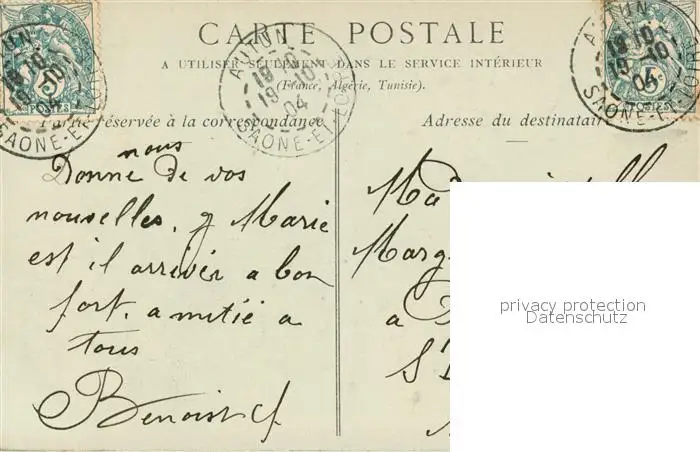 CARTE POSTALE
A UTILISER SEULEMENT DANS LE SERVICE INTÉRIEUR
(France, Algérie, Tunisie).
Partie réservée à la correspondance
Adresse du destinataire
AUTUN
19 10
19-10
04
SAONE-ET-LOIRE
5
POSTES
nous
Donne de vos
nouvelles,
Marie
est il arriver a bon
fort. amitié a
tous
Benoist
Marg
a
privacy protection
Datenschutz